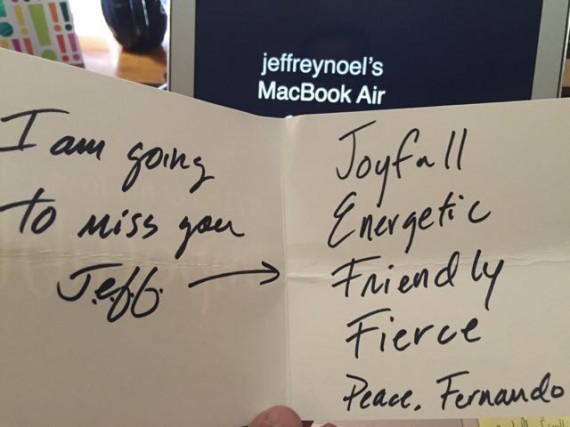 jeffreynoel's
MacBook Air
I am going
to miss you
J.e.f.f. →
Joyfull
Energetic
Friendly
Fierce
Peace, Fernando